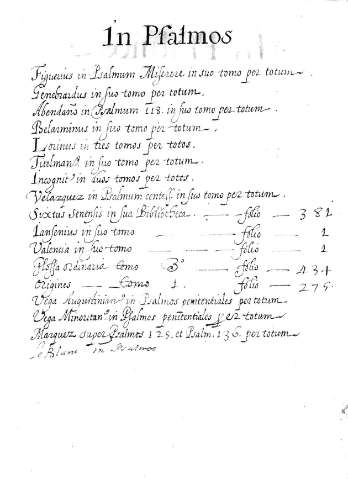 In Psalmos
Figuerius in Psalmum Miserere in suo tomo per totum.
Genebrardus in suo tomo per totum.
Abendaño in Psalmum 118. in suo tomo per totum.
Belarminus in suo tomo per totum.
Lorinus in ties tomos per totos.
Titelman⁹. in suo tomo per totum.
Incognit⁹ in duos tomos per totos.
Velazquez in Psalmum centess. in suo tomo per totum.
Sixtus Senensis in sua Bibliotheca. folio 381
Iansenius in suo tomo folio 1
Valencia in suo tomo folio 1
Glossa ordinaria tomo 3º folio 434
Origines tomo 1. folio 275
Vega Augustinian⁹. in Psalmos penitentiales per totum.
Vega Minoritan⁹. in Psalmos penitentiales per totum
Marquez super Psalmos 125. et Psalm. 136. per totum
in Psalmos